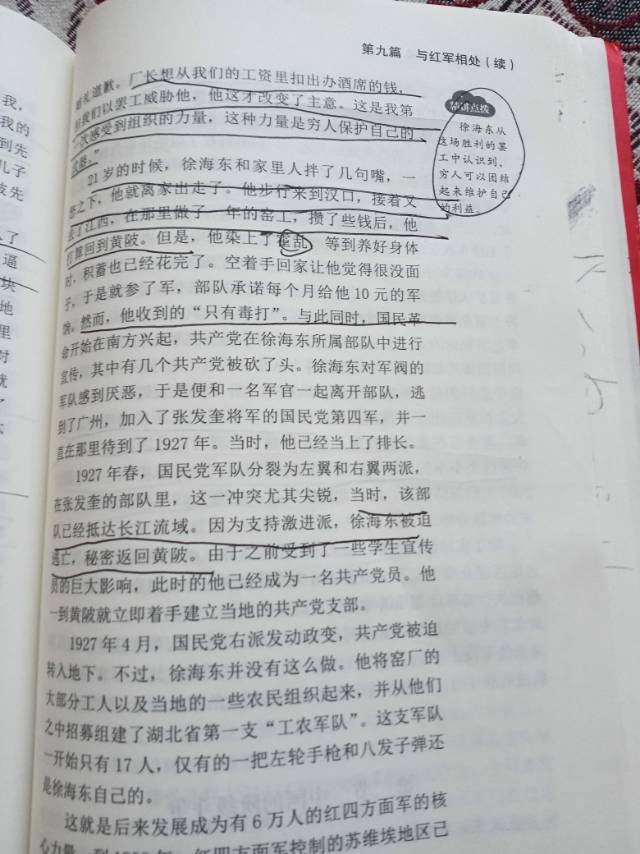 第九篇 与红军相处（续）
婚礼道歉。厂长想从我们的工资里扣出办酒席的钱，
我们以罢工威胁他，他这才改变了主意。这是我第
一次感受到组织的力量，这种力量是穷人保护自己的
精讲点拨
徐海东从
这场胜利的罢
工中认识到，
穷人可以团结
起来维护自己
的利益。
21 岁的时候，徐海东和家里人拌了几句嘴，一
之下，他就离家出走了。他步行来到汉口，接着又
去了江西，在那里做了一年的窑工，攒了些钱后，他
打算回到黄陂。但是，他染上了霍乱 等到养好身体
时，积蓄也已经花完了。空着手回家让他觉得很没面
子，于是就参了军，部队承诺每个月给他 10 元的军
饷。然而，他收到的“只有毒打”。与此同时，国民革
命开始在南方兴起，共产党在徐海东所属部队中进行
宣传，其中有几个共产党被砍了头。徐海东对军阀的
军队感到厌恶，于是便和一名军官一起离开部队，逃
到了广州，加入了张发奎将军的国民党第四军，并一
直在那里待到了 1927 年。当时，他已经当上了排长。
1927 年春，国民党军队分裂为左翼和右翼两派，
在张发奎的部队里，这一冲突尤其尖锐，当时，该部
队已经抵达长江流域。因为支持激进派，徐海东被迫
逃亡，秘密返回黄陂。由于之前受到了一些学生宣传
员的巨大影响，此时的他已经成为一名共产党员。他
一到黄陂就立即着手建立当地的共产党支部。
1927 年 4 月，国民党右派发动政变，共产党被迫
转入地下。不过，徐海东并没有这么做。他将窑厂的
大部分工人以及当地的一些农民组织起来，并从他们
之中招募组建了湖北省第一支“工农军队”。这支军队
一开始只有 17 人，仅有的一把左轮手枪和八发子弹还
是徐海东自己的。
这就是后来发展成为有 6 万人的红四方面军的核
心力量。到 红四方面军控制的苏维埃地区已